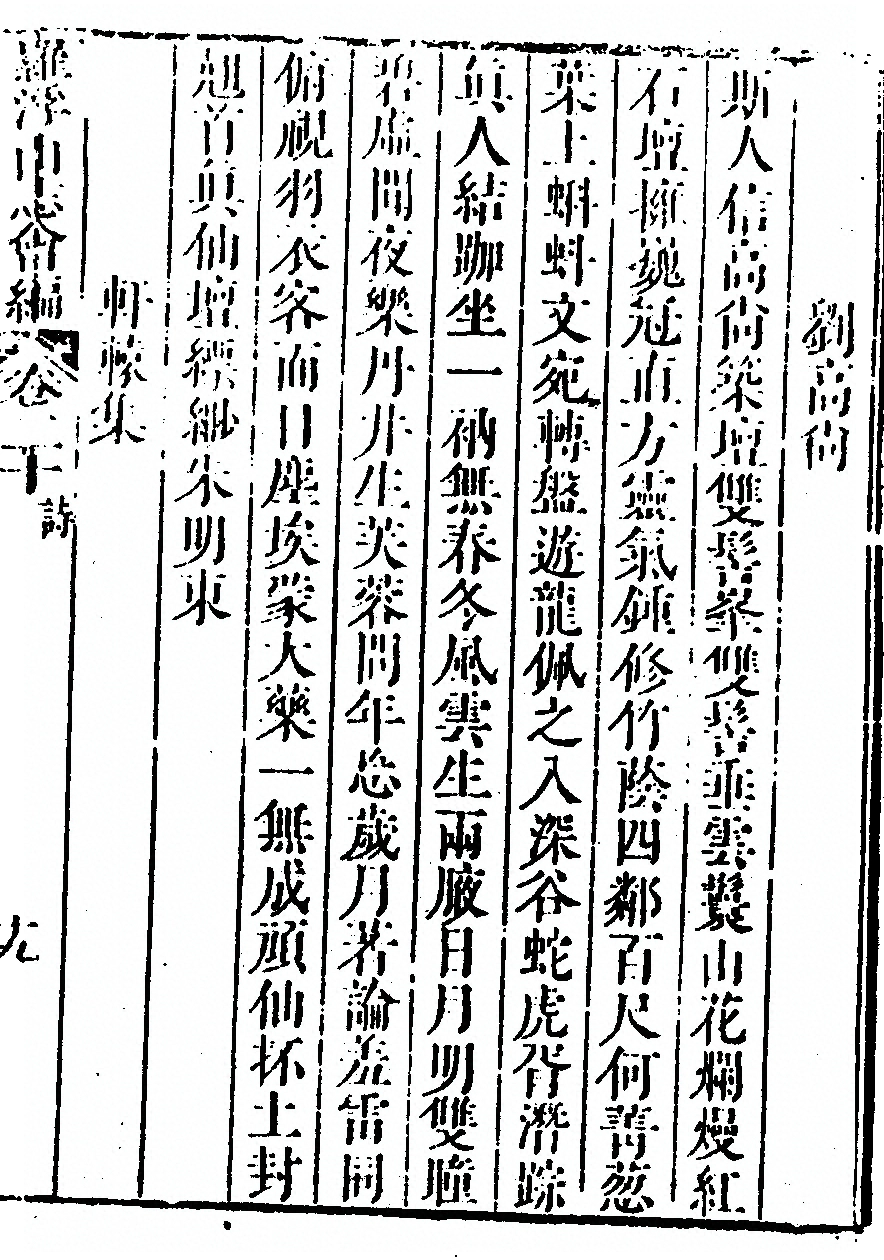 劉高尙
斯人信高尙築壇雙髻峯雙髻垂雲鬟山花爛熳紅
石壇擁巍冠直方靈氣鍾修竹蔭四鄰百尺何菁葱
葉上蝌蚪文宛轉盤遊龍佩之入深谷蛇虎胥潛踪
眞人結跏坐一衲無春冬風雲生兩腋日月明雙瞳
碧虛聞夜樂丹井生芙蓉問年忘歲月著論羞雷同
俯視羽衣客面目塵埃蒙大藥一無成頑仙抔土封
翹首與仙壇縹緲朱明東
軒轅集
羅浮山志會編 卷二十 詩 九